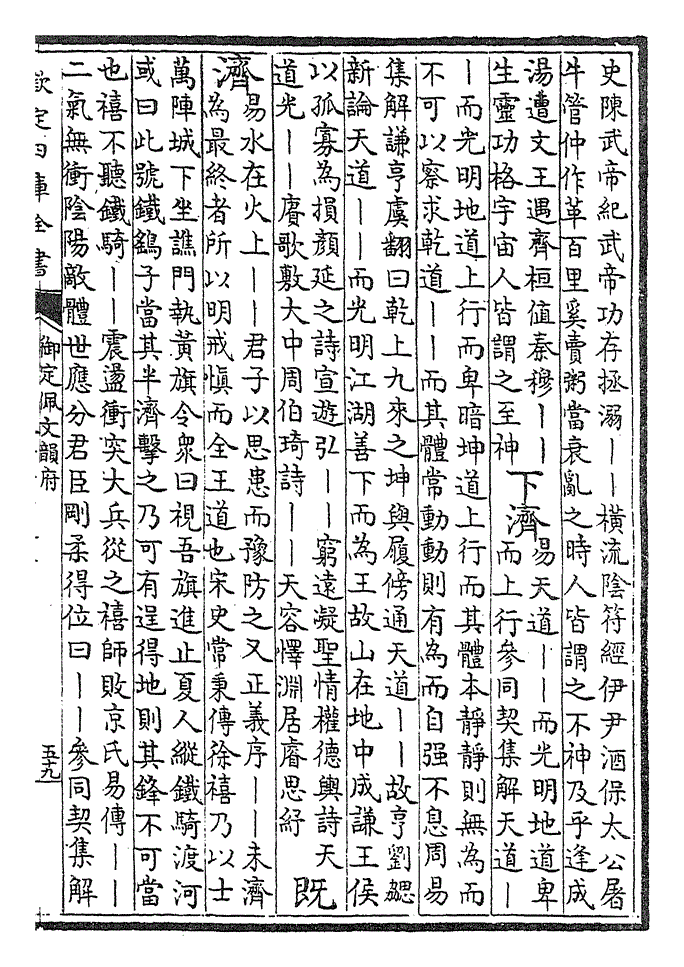 史陳武帝紀武帝功存拯溺丨丨橫流陰符經伊尹酒保太公屠
牛管仲作革百里奚賣粥當衰亂之時人皆謂之不神及乎逢成
湯遭文王遇齊桓值秦穆丨丨
生靈功格宇宙人皆謂之至神
下濟
易天道丨丨而光明地道卑
而上行參同契集解天道丨
丨而光明地道上行而卑暗坤道上行而其體本靜靜則無為而
不可以察求乾道丨丨而其體常動動則有為而自强不息周易
集解謙亨虞翻曰乾上九來之坤與履傍通天道丨丨故亨劉勰
新論天道丨丨而光明江湖善下而為王故山在地中成謙王侯
以孤寡為損顔延之詩宣遊弘丨丨窮遠凝聖情權德輿詩天
道光丨丨賡歌敷大中周伯琦詩丨丨天容懌淵居睿思紓
既
濟
易水在火上丨丨君子以思患而豫防之又正義序丨丨未濟
為最終者所以明戒慎而全王道也宋史常秉傳徐禧乃以士
萬陣城下坐譙門執黃旗令衆曰視吾旗進止夏人縱鐵騎渡河
或曰此號鐵鷂子當其半濟擊之乃可有逞得地則其鋒不可當
也禧不聽鐵騎丨丨震盪衝突大兵從之禧師敗京氏易傳丨丨
二氣無衝陰陽敵體世應分君臣剛柔得位曰丨丨參同契集解
欽定四庫全書
御定佩文韻府
五十九